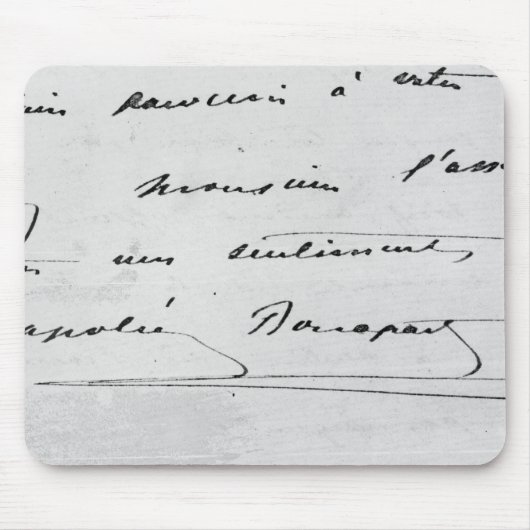 parvenir à votre
monsieur l'ass
mes sentiments
apoléo Bonapart